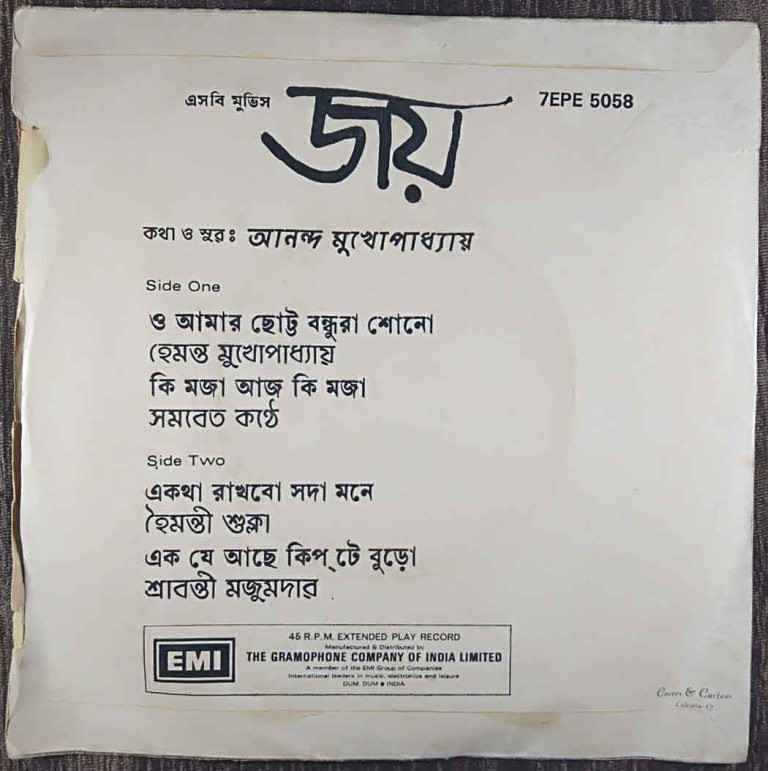 এসবি মুভিস
জয়
7EPE 5058
কথা ও সুরঃ আনন্দ মুখোপাধ্যায়
Side One
ও আমার ছোট্ট বন্ধুরা শোনো
হেমন্ত মুখোপাধ্যায়
কি মজা আজ কি মজা
সমবেত কণ্ঠে
Side Two
একথা রাখবো সদা মনে
হৈমন্তী শুক্লা
এক যে আছে কিপ্টে বুড়ো
শ্রাবন্তী মজুমদার
EMI
45 R.P.M. EXTENDED PLAY RECORD
Manufactured & Distributed by
THE GRAMOPHONE COMPANY OF INDIA LIMITED
A member of the EMI Group of Companies
International leaders in music, electronics and leisure
DUM DUM ● INDIA
Covers & Cartons
Calcutta-12